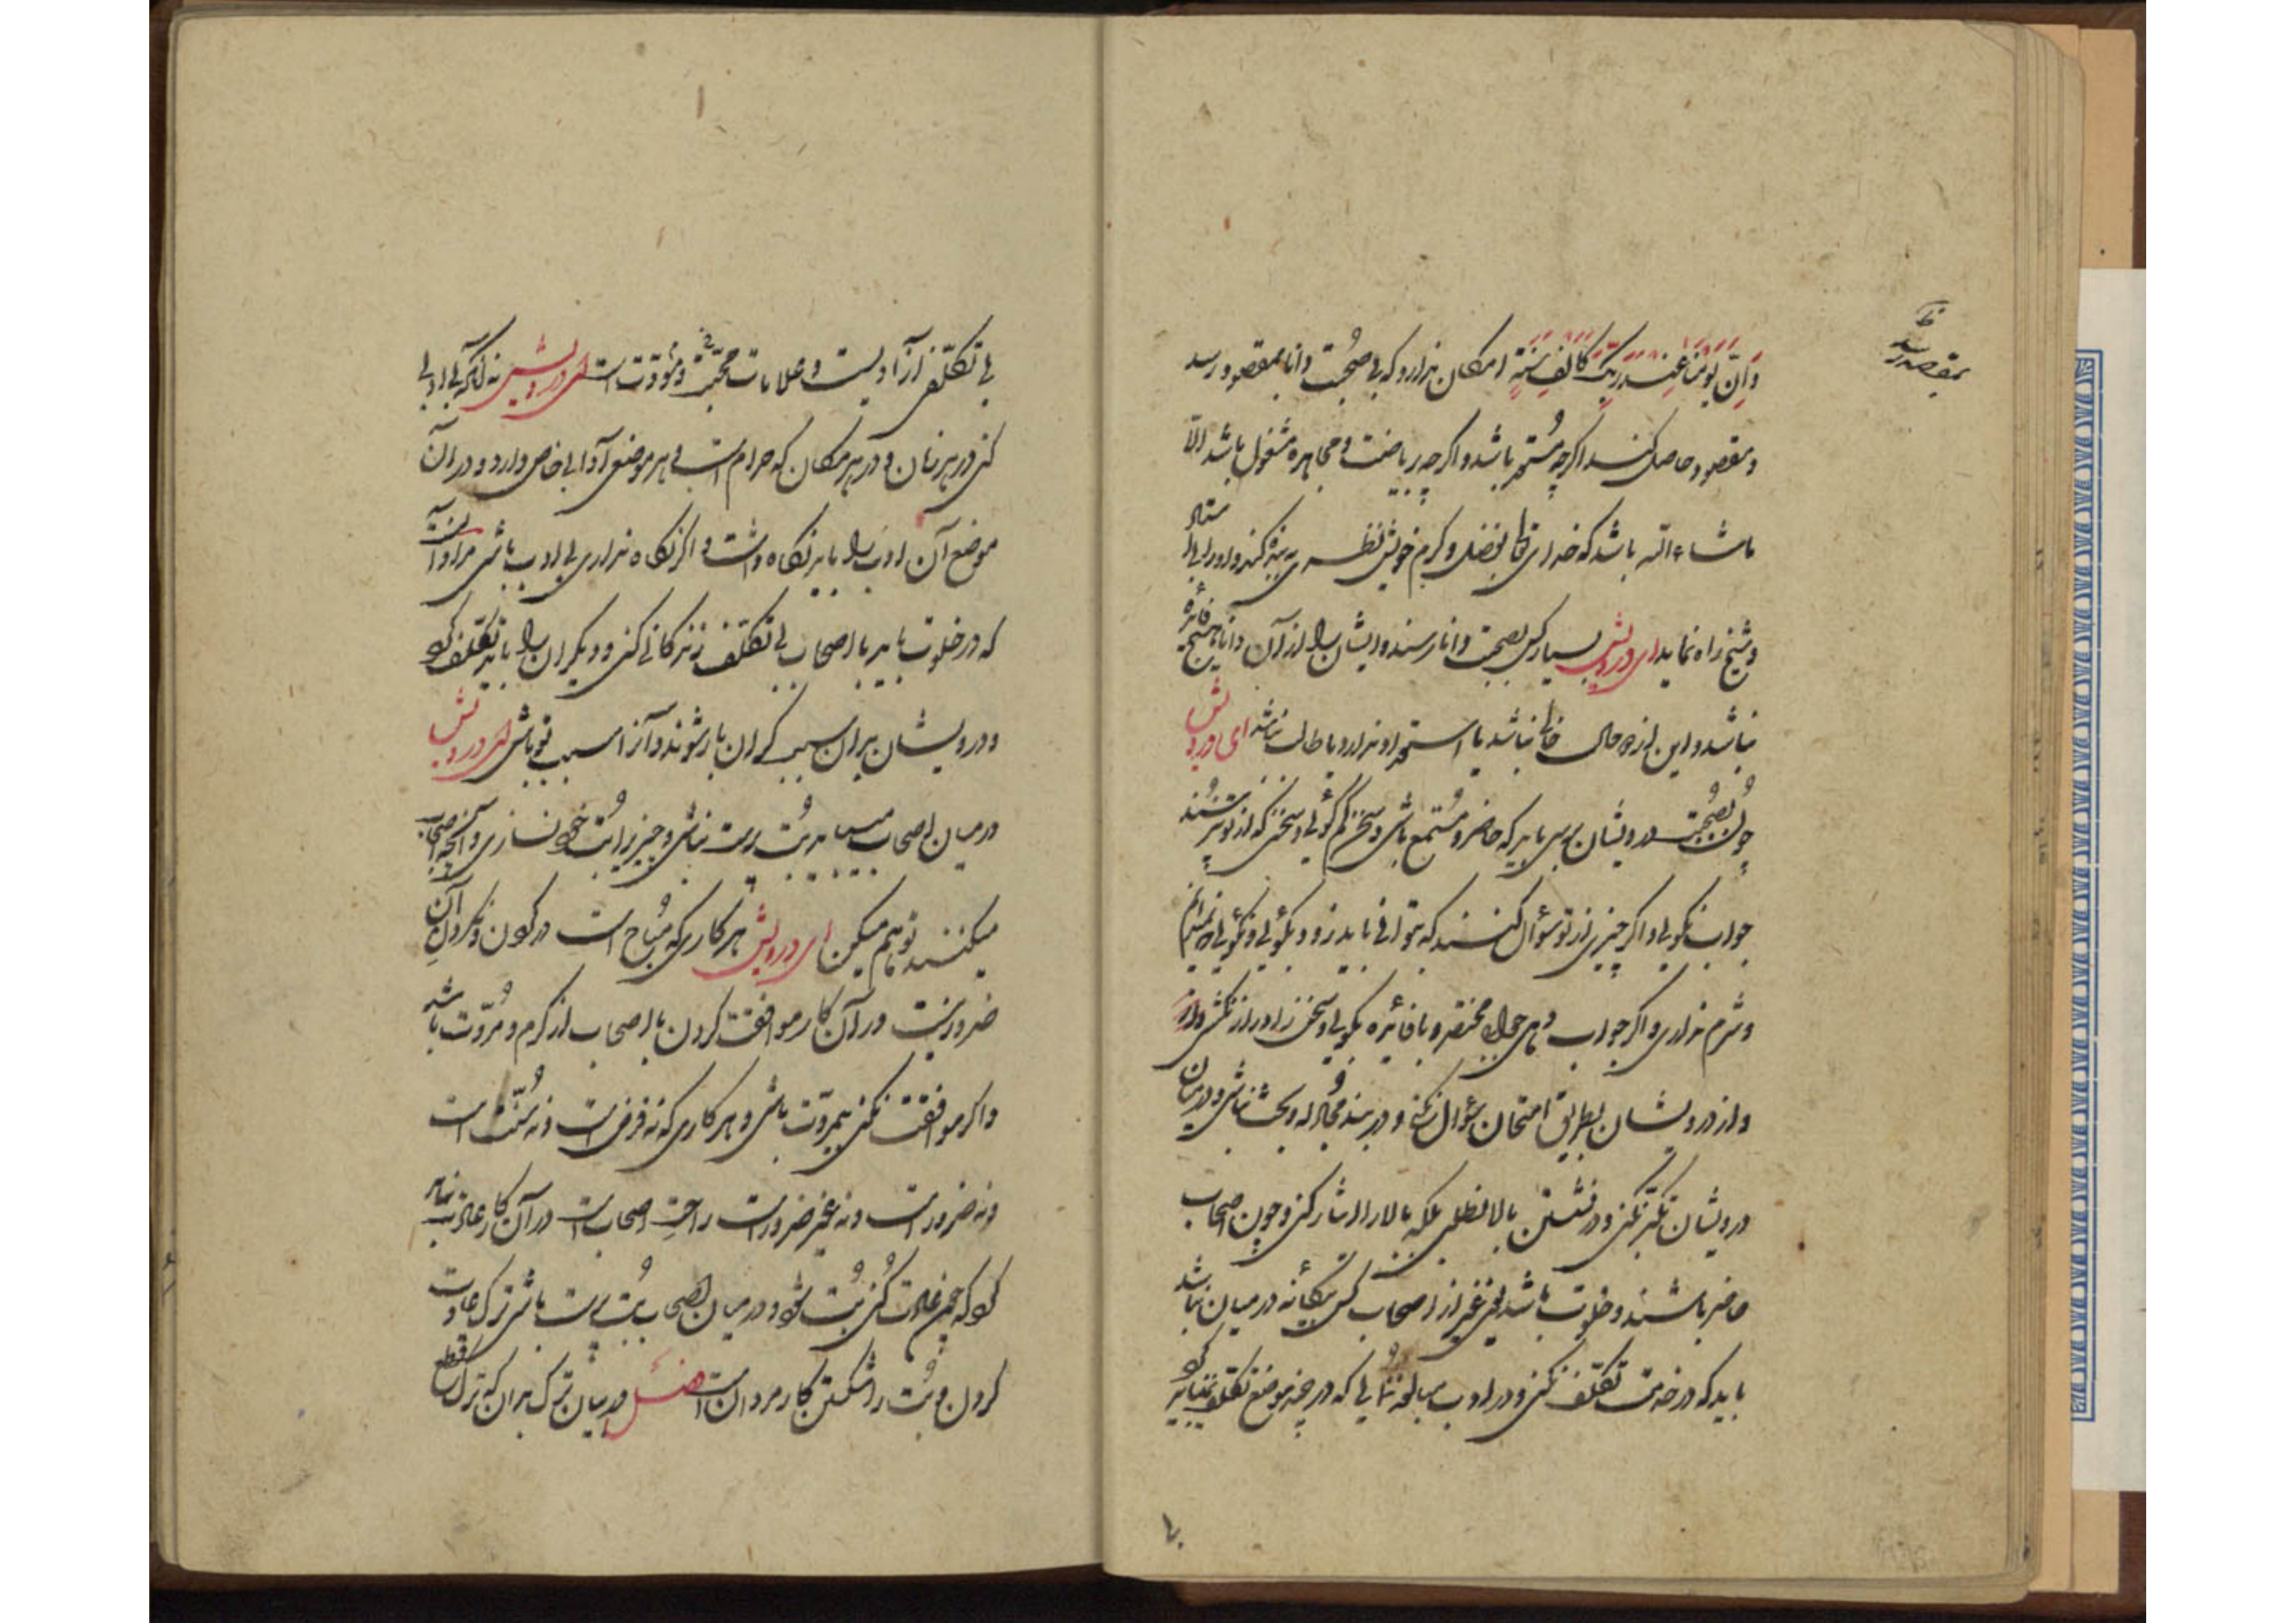 بمقصد رسد
وَاِنَّ یَوْمًا عِنْدَ رَبِّکَ کَاَلْفِ سَنَةٍ امکان ندارد که بی صُحبت دانا بمقصود رسد
و مقصود حاصل کند اگرچه مُستعد باشد و اگرچه بریاضت و مجاهده مشغول باشد الّا
ماشاءالله باشد که خدای تعالی بفضل و کرم خویش نظر به بنده کند و او را بی استاد
و شیخ راه نماید ای درویش بسیار کس بصحبت دانا رسند و ایشان را از آن دانا هیچ فائده
نباشد و این از دو حال خالی نباشد یا استعداد ندارد یا طالب نباشد ای درویش
چون بصُحبت درویشان برسی باید که حاضر و مُستمع باشی و سخن کم گوئی و سخنی که از تو نپرسند
جواب نگوئی و اگر چیزی از تو سؤال کنند که بتو آنی باید زود بگوئی و نگوئی که نمیدانم
و شرم نداری و اگر جواب دهی جواب مختصر و با فائده بگوئی و سخن را دراز نکشی
و از درویشان بطریق امتحان سؤال نکنی و در بند مُجادله و بحث نباشی و در میان
درویشان تکبّر نکنی و در نشستن بالا نطلبی بلکه بالا را ایثار کنی و چون اصحاب
حاضر باشند و خلوت باشد یعنی غیر از اصحاب کسی بیگانه در میان نباشد
باید که در خدمت تکلّف نکنی و در ادب مبالغه نُنمائی که در چند موضع تکلّف نمیباید کرد
بی تکلّفی از آزادیست و علامات محبّت و مُوَدّت است ای درویش نه آنکه بی ادبی
کنی در هر زمان و در هر مکان که حرام است و هر موضعی آدابی خاص دارد و در آن
موضع آن ادب را باید نگاه داشت و اگر نگاه نداری بی ادب باشی مراد آنست
که در خلوت باید با اصحاب بی تکلّف زندگانی کنی و دیگران را باید تکلّف کرد
و درویشان بدان سبب گران بار شوند و آنرا سبب تو باشی ای درویش
در میان اصحاب باید بُت پرست نباشی و چیزی را بُت خود نسازی و آنچه اصحاب
میکنند تو هم میکن ای درویش هر کاری که مُباح است در کردن و نکردن آن
ضرورتیست در آن کار موافقت کردن با اصحاب از کرم و مُروّت باشد
و اگر موافقت نکنی بیمروّت باشی و هر کاری که نه فرض است و نه سُنّت است
و نه ضرورت است و نه غیر ضرورت راحتِ اصحاب است در آن کار عادت نباید
کرد که چون عادت کُنی بُت شود و در میان اصحاب بُت پرست باشی ترک عادت
کردن و بُت را شکستن کار مردان است فصل در بیان ترک بدان که ترک قطع